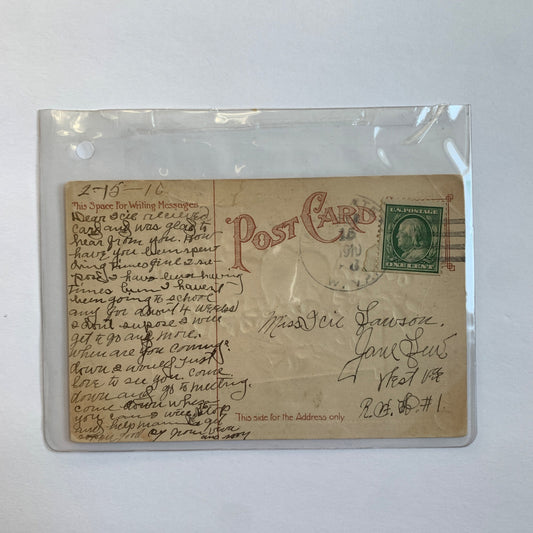 2-15-10
This Space For Writing Messages
Dear Icie received
card and was glad to
hear from you. How
have you been spen
ding times girl I su-
pose I have been having
times I haven't
been going to school
any for about 4 weekes
I don't supose I will
get to go and more.
when are you coming
down I would Just
love to see you. come
down and go to meeting.
come down when
you can I will stop
and help mama
from
and
POST CARD
16
1910
W. VA.
U.S. POSTAGE
ONE CENT
Miss Icie Lawson.
Jane Lew
West Va
R.F.D. #1.
This side for the Address only.